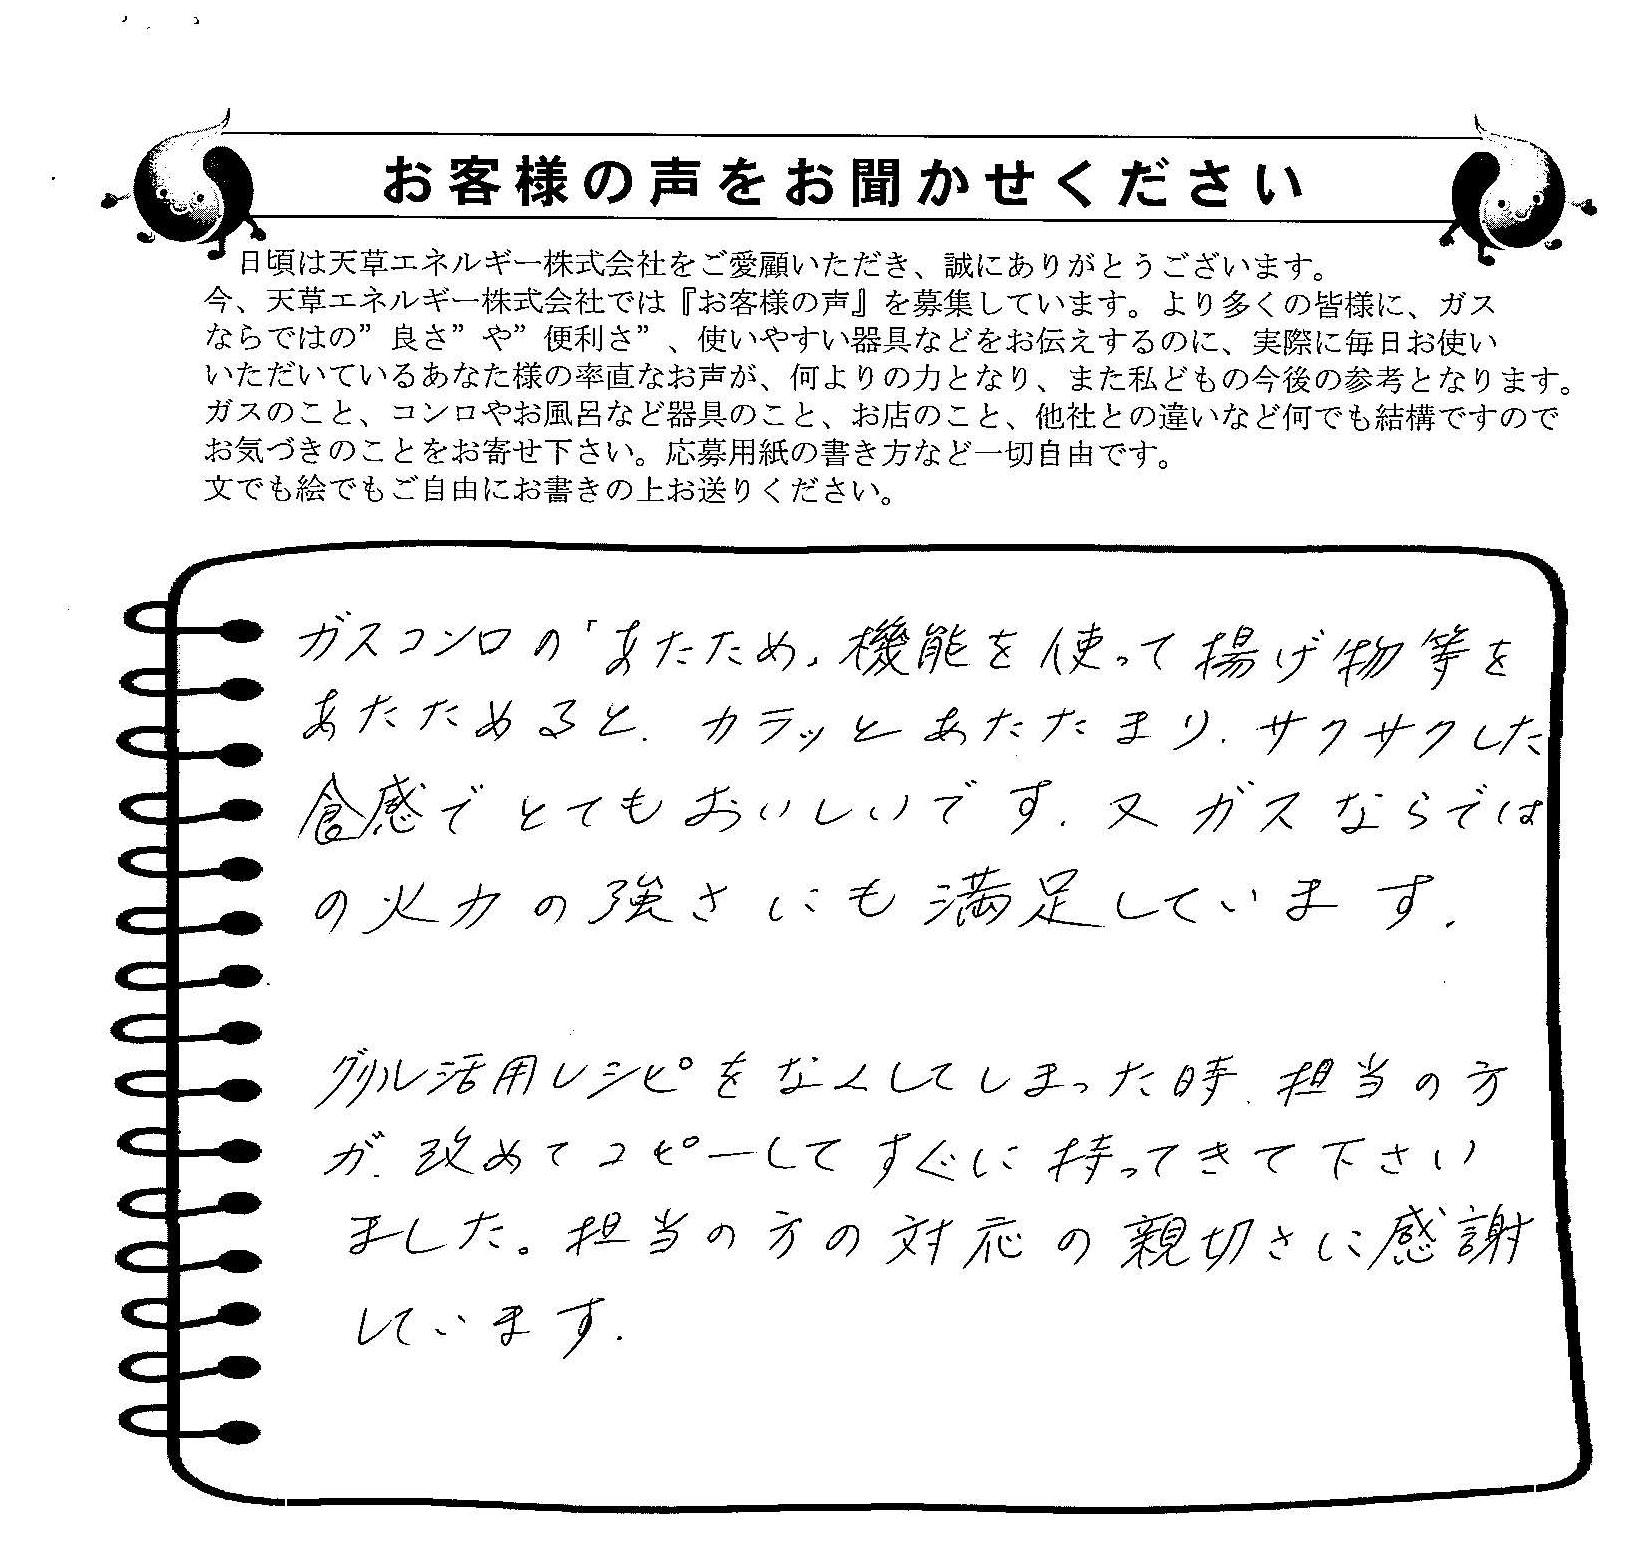 お客様の声をお聞かせください
日頃は天草エネルギー株式会社をご愛顧いただき、誠にありがとうございます。
今、天草エネルギー株式会社では『お客様の声』を募集しています。より多くの皆様に、ガス
ならではの”良さ”や”便利さ”、使いやすい器具などをお伝えするのに、実際に毎日お使い
いただいているあなた様の率直なお声が、何よりの力となり、また私どもの今後の参考となります。
ガスのこと、コンロやお風呂など器具のこと、お店のこと、他社との違いなど何でも結構ですので
お気づきのことをお寄せ下さい。応募用紙の書き方など一切自由です。
文でも絵でもご自由にお書きの上お送りください。
ガスコンロの「あたため」機能を使って揚げ物等を
あたためると、カラッとあたたまり、サクサクした
食感でとてもおいしいです。又ガスならでは
の火力の強さにも満足しています。
グリル活用レシピをなくしてしまった時、担当の方
が、改めてコピーしてすぐに持ってきて下さい
ました。担当の方の対応の親切さに感謝
しています。